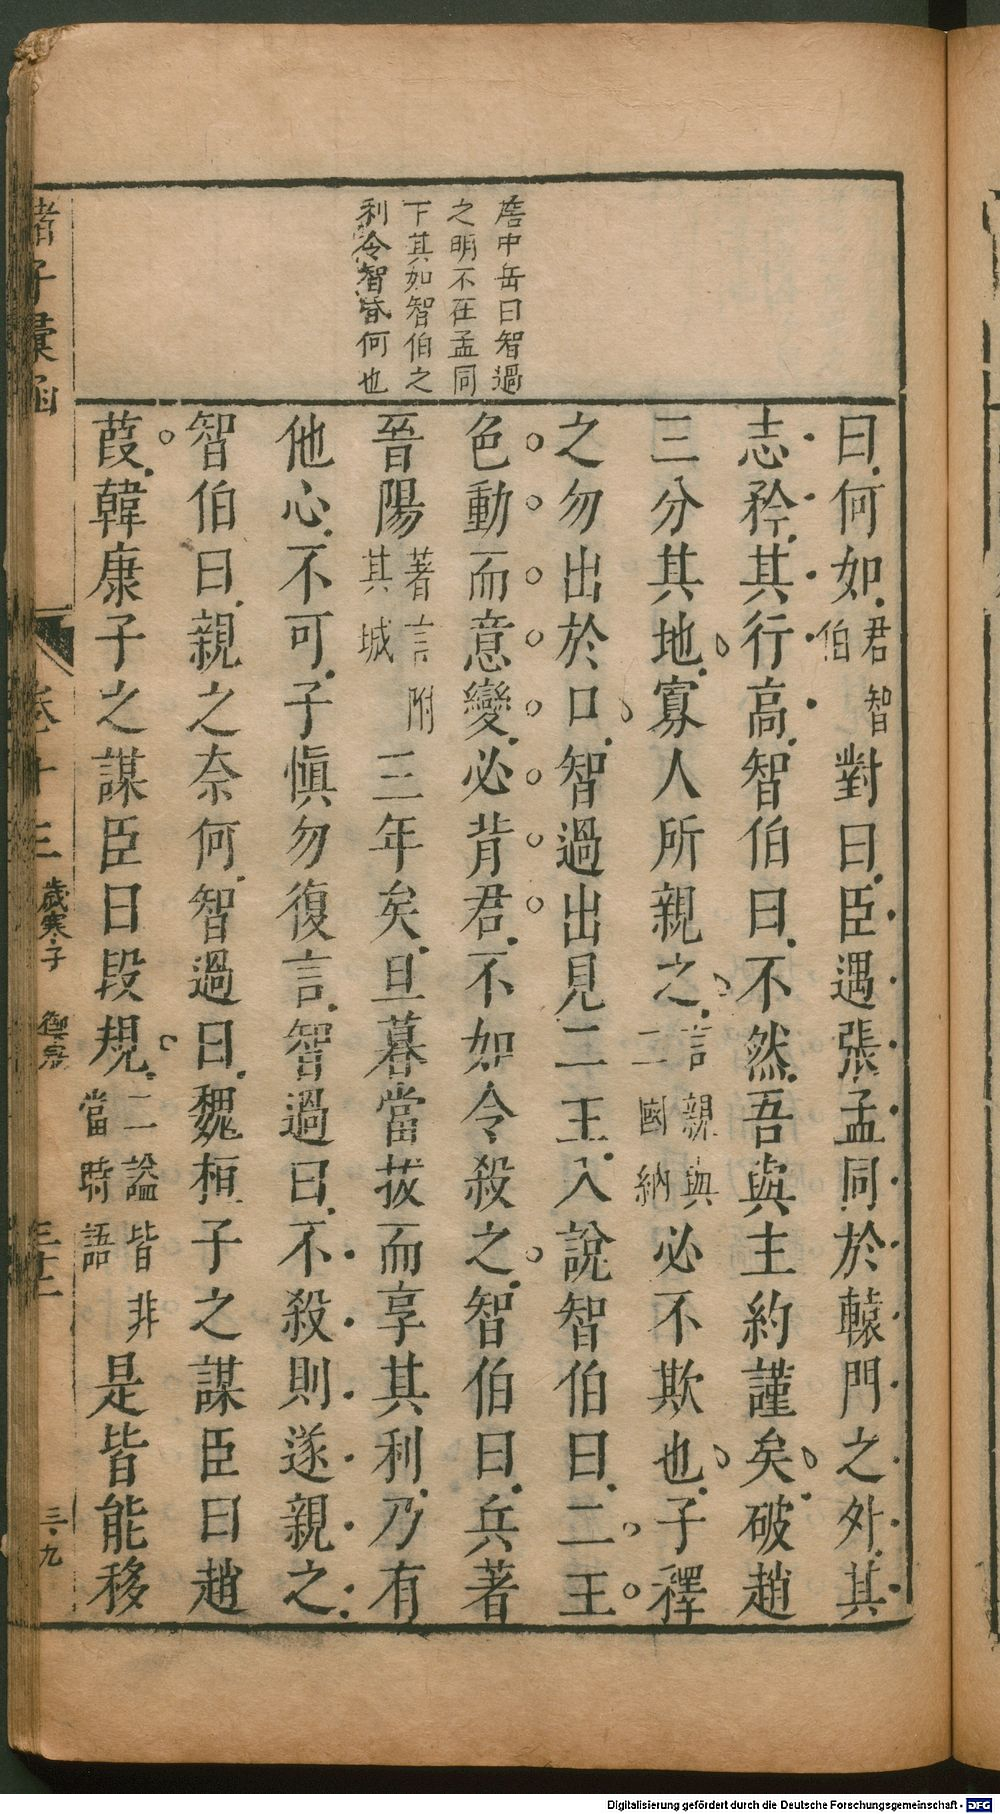 唐中岳曰智過
之明不在孟同
下其如智伯之
利令智昏何也
曰何如君智伯對曰臣遇張孟同於轅門之外其
志矜其行高智伯曰不然吾與主約謹矣破趙
三分其地寡人所親之言親與二國納必不欺也子釋
之勿出於口智過出見二王入說智伯曰二王
色動而意變必背君不如令殺之智伯曰兵著
晉陽著言附其城三年矣旦暮當拔而享其利乃有
他心不可子慎勿復言智過曰不殺則遂親之
智伯曰親之奈何智過曰魏桓子之謀臣曰趙
葭韓康子之謀臣曰段規二謚皆非當時語是皆能移
諸子彙函
卷十三
歲寒子
三十二
三九
Digitalisierung gefördert durch die Deutsche Forschungsgemeinschaft - DFG